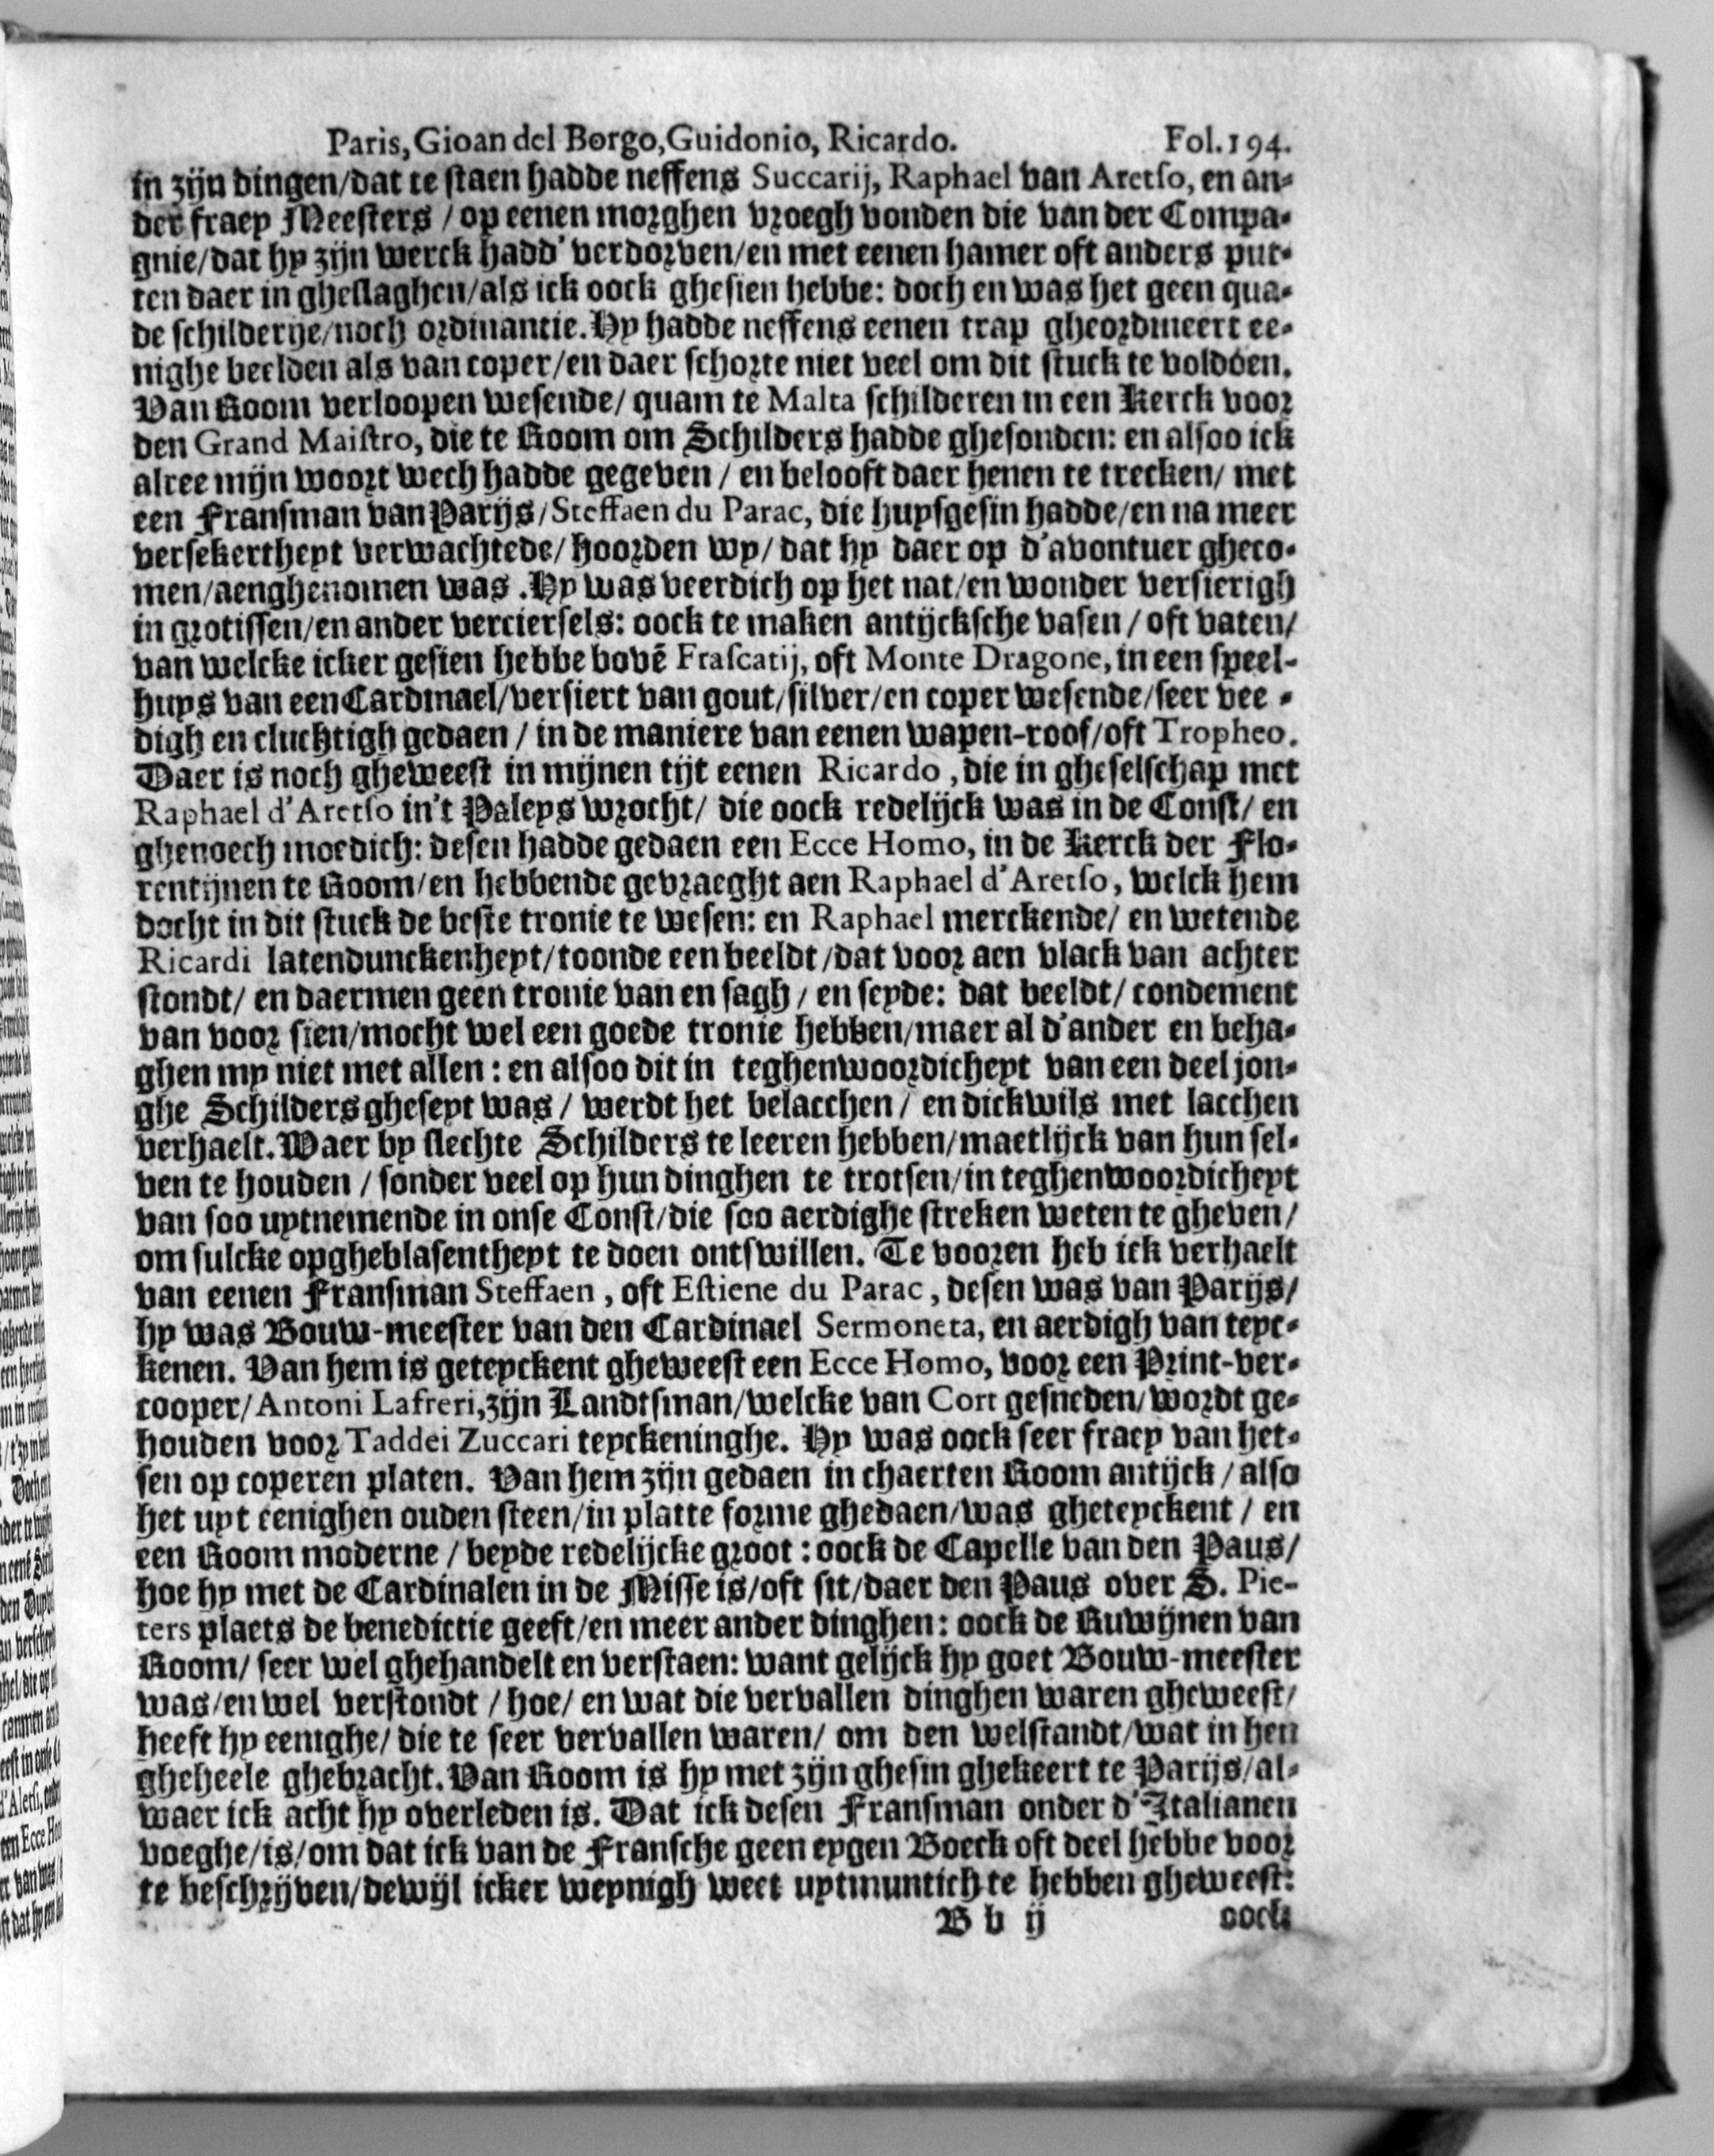 Paris, Gioan del Borgo, Guidonio, Ricardo. Fol. 194.
in zijn dingen/dat te staen hadde neffens Succarij, Raphael van Aretso, en an-
der fraey Meesters / op eenen morghen vroegh vonden die van der Compa-
gnie/dat hy zijn werck hadd' verdorven/en met eenen hamer oft anders put-
ten daer in gheslaghen/als ick oock ghesien hebbe: doch en was het geen qua-
de schilderije/noch ordinantie. Hy hadde neffens eenen trap gheordineert ee-
nighe beelden als van coper/en daer schorte niet veel om dit stuck te voldoen.
Van Room verloopen wesende/ quam te Malta schilderen in een Kerck voor
den Grand Maistro, die te Room om Schilders hadde ghesonden: en alsoo ick
alree mijn woort wech hadde gegeven / en belooft daer henen te trecken/ met
een Fransman van Parijs/Steffaen du Parac, die huysgesin hadde/en na meer
versekertheyt verwachtede/ hoorden wy/ dat hy daer op d'avontuer gheco-
men/aenghenomen was. Hy was veerdich op het nat/en wonder versierigh
in grotissen/en ander verciersels: oock te maken antijcksche vasen / oft vaten/
van welcke icker gesien hebbe bovē Frascatij, oft Monte Dragone, in een speel-
huys van een Cardinael/versiert van gout/silver/en coper wesende/seer vee-
digh en cluchtigh gedaen / in de maniere van eenen wapen-roof/oft Tropheo.
Daer is noch gheweest in mijnen tijt eenen Ricardo, die in gheselschap met
Raphael d'Aretso in't Paleys wrocht/ die oock redelijck was in de Const/ en
ghenoech moedich: desen hadde gedaen een Ecce Homo, in de Kerck der Flo-
rentijnen te Room/en hebbende gevraeght aen Raphael d'Aretso, welck hem
docht in dit stuck de beste tronie te wesen: en Raphael merckende/ en wetende
Ricardi latendunckenheyt/toonde een beeldt/dat voor aen vlack van achter
stondt/ en daermen geen tronie van en sagh / en seyde: dat beeldt/ condement
van voor sien/mocht wel een goede tronie hebben/maer al d'ander en beha-
ghen my niet met allen: en alsoo dit in teghenwoordicheyt van een deel jon-
ghe Schilders gheseyt was / werdt het belacchen / en dickwils met lacchen
verhaelt. Waer by slechte Schilders te leeren hebben/maetlijck van hun sel-
ven te houden / sonder veel op hun dinghen te trotsen/in teghenwoordicheyt
van soo uytnemende in onse Const/die soo aerdighe streken weten te gheven/
om sulcke opgheblasentheyt te doen ontswillen. Te vooren heb ick verhaelt
van eenen Fransman Steffaen, oft Estiene du Parac, desen was van Parijs/
hy was Bouw-meester van den Cardinael Sermoneta, en aerdigh van teyc-
kenen. Van hem is geteyckent gheweest een Ecce Homo, voor een Print-ver-
cooper/Antoni Lafreri, zijn Landtsman/welcke van Cort gesneden/wordt ge-
houden voor Taddei Zuccari teyckeninghe. Hy was oock seer fraey van het-
sen op coperen platen. Van hem zijn gedaen in chaerten Room antijck / also
het uyt eenighen ouden steen/in platte forme ghedaen/was gheteyckent / en
een Room moderne / beyde redelijcke groot: oock de Capelle van den Paus/
hoe hy met de Cardinalen in de Misse is/oft sit/daer den Paus over S. Pie-
ters plaets de benedictie geeft/en meer ander dinghen: oock de Ruwijnen van
Room/ seer wel ghehandelt en verstaen: want gelijck hy goet Bouw-meester
was/en wel verstondt / hoe/ en wat die vervallen dinghen waren gheweest/
heeft hy eenighe/ die te seer vervallen waren/ om den welstandt/wat in hen
gheheele ghebracht. Van Room is hy met zijn ghesin ghekeert te Parijs/al-
waer ick acht hy overleden is. Dat ick desen Fransman onder d'Italianen
voeghe/is/om dat ick van de Fransche geen eygen Boeck oft deel hebbe voor
te beschrijven/dewijl icker weynigh weet uytmuntich te hebben gheweest:
B b ij oock